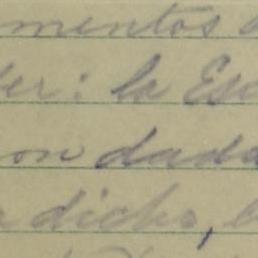 mentos
er: la Es
on dada
dicho,